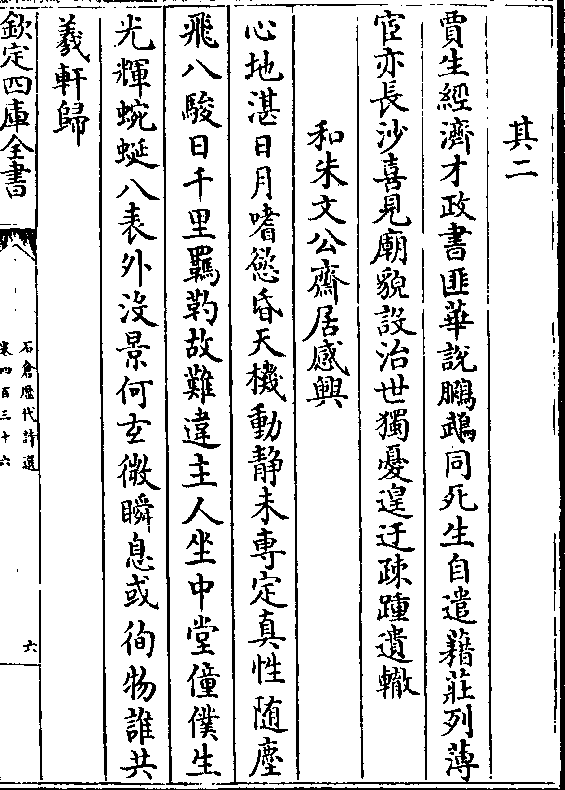 其二
賈生經濟才政書匪華說鵬鵡同死生自遣藉莊列薄
宦亦長沙喜見廟貌設治世獨憂遑迂疎踵遺轍
和朱文公齋居感興
心地湛日月嗜慾昏天機動靜未專定真性隨塵
飛八駿日千里羈靮故難違主人坐中堂僮僕生
光輝蜿蜒八表外沒景何玄微瞬息或徇物誰共
羲軒歸
欽定四庫全書
石倉歷代詩選
卷四百三十六
六